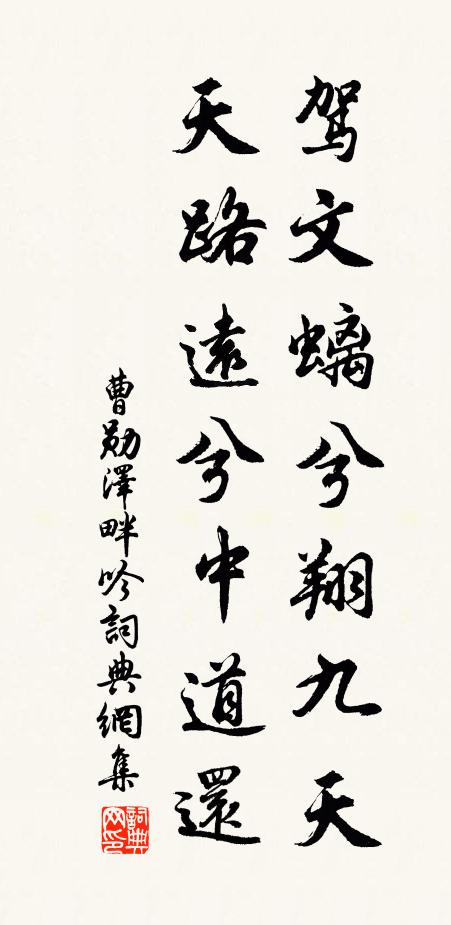 駕文螭兮翔九天
天路遠兮中道還
曹勛澤畔吟詞典網集
詞典網印